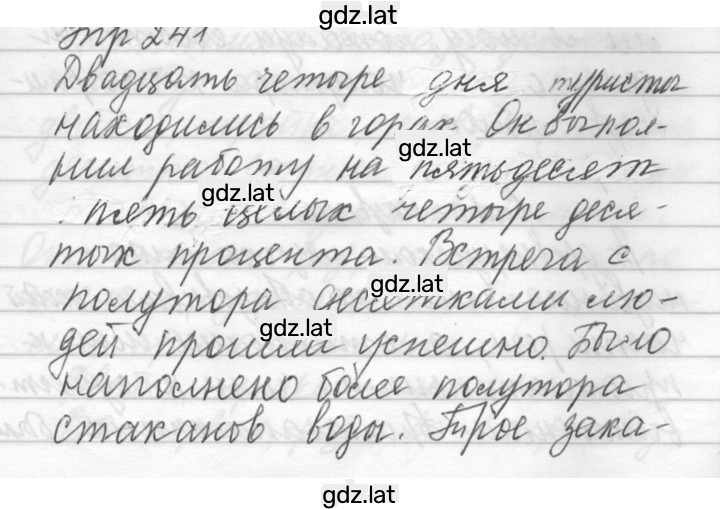 gdz.lat
Упр 241
Двадцать четыре дня туристы
находились в горах. Он выпол-
gdz.lat
нил работу на пятьдесят
gdz.lat
пять целых четыре деся-
тых процента. Встреча с
gdz.lat
полутора десятками лю-
gdz.lat
дей прошла успешно. Было
наполнено более полутора
стаканов воды. Трое зака-
gdz.lat